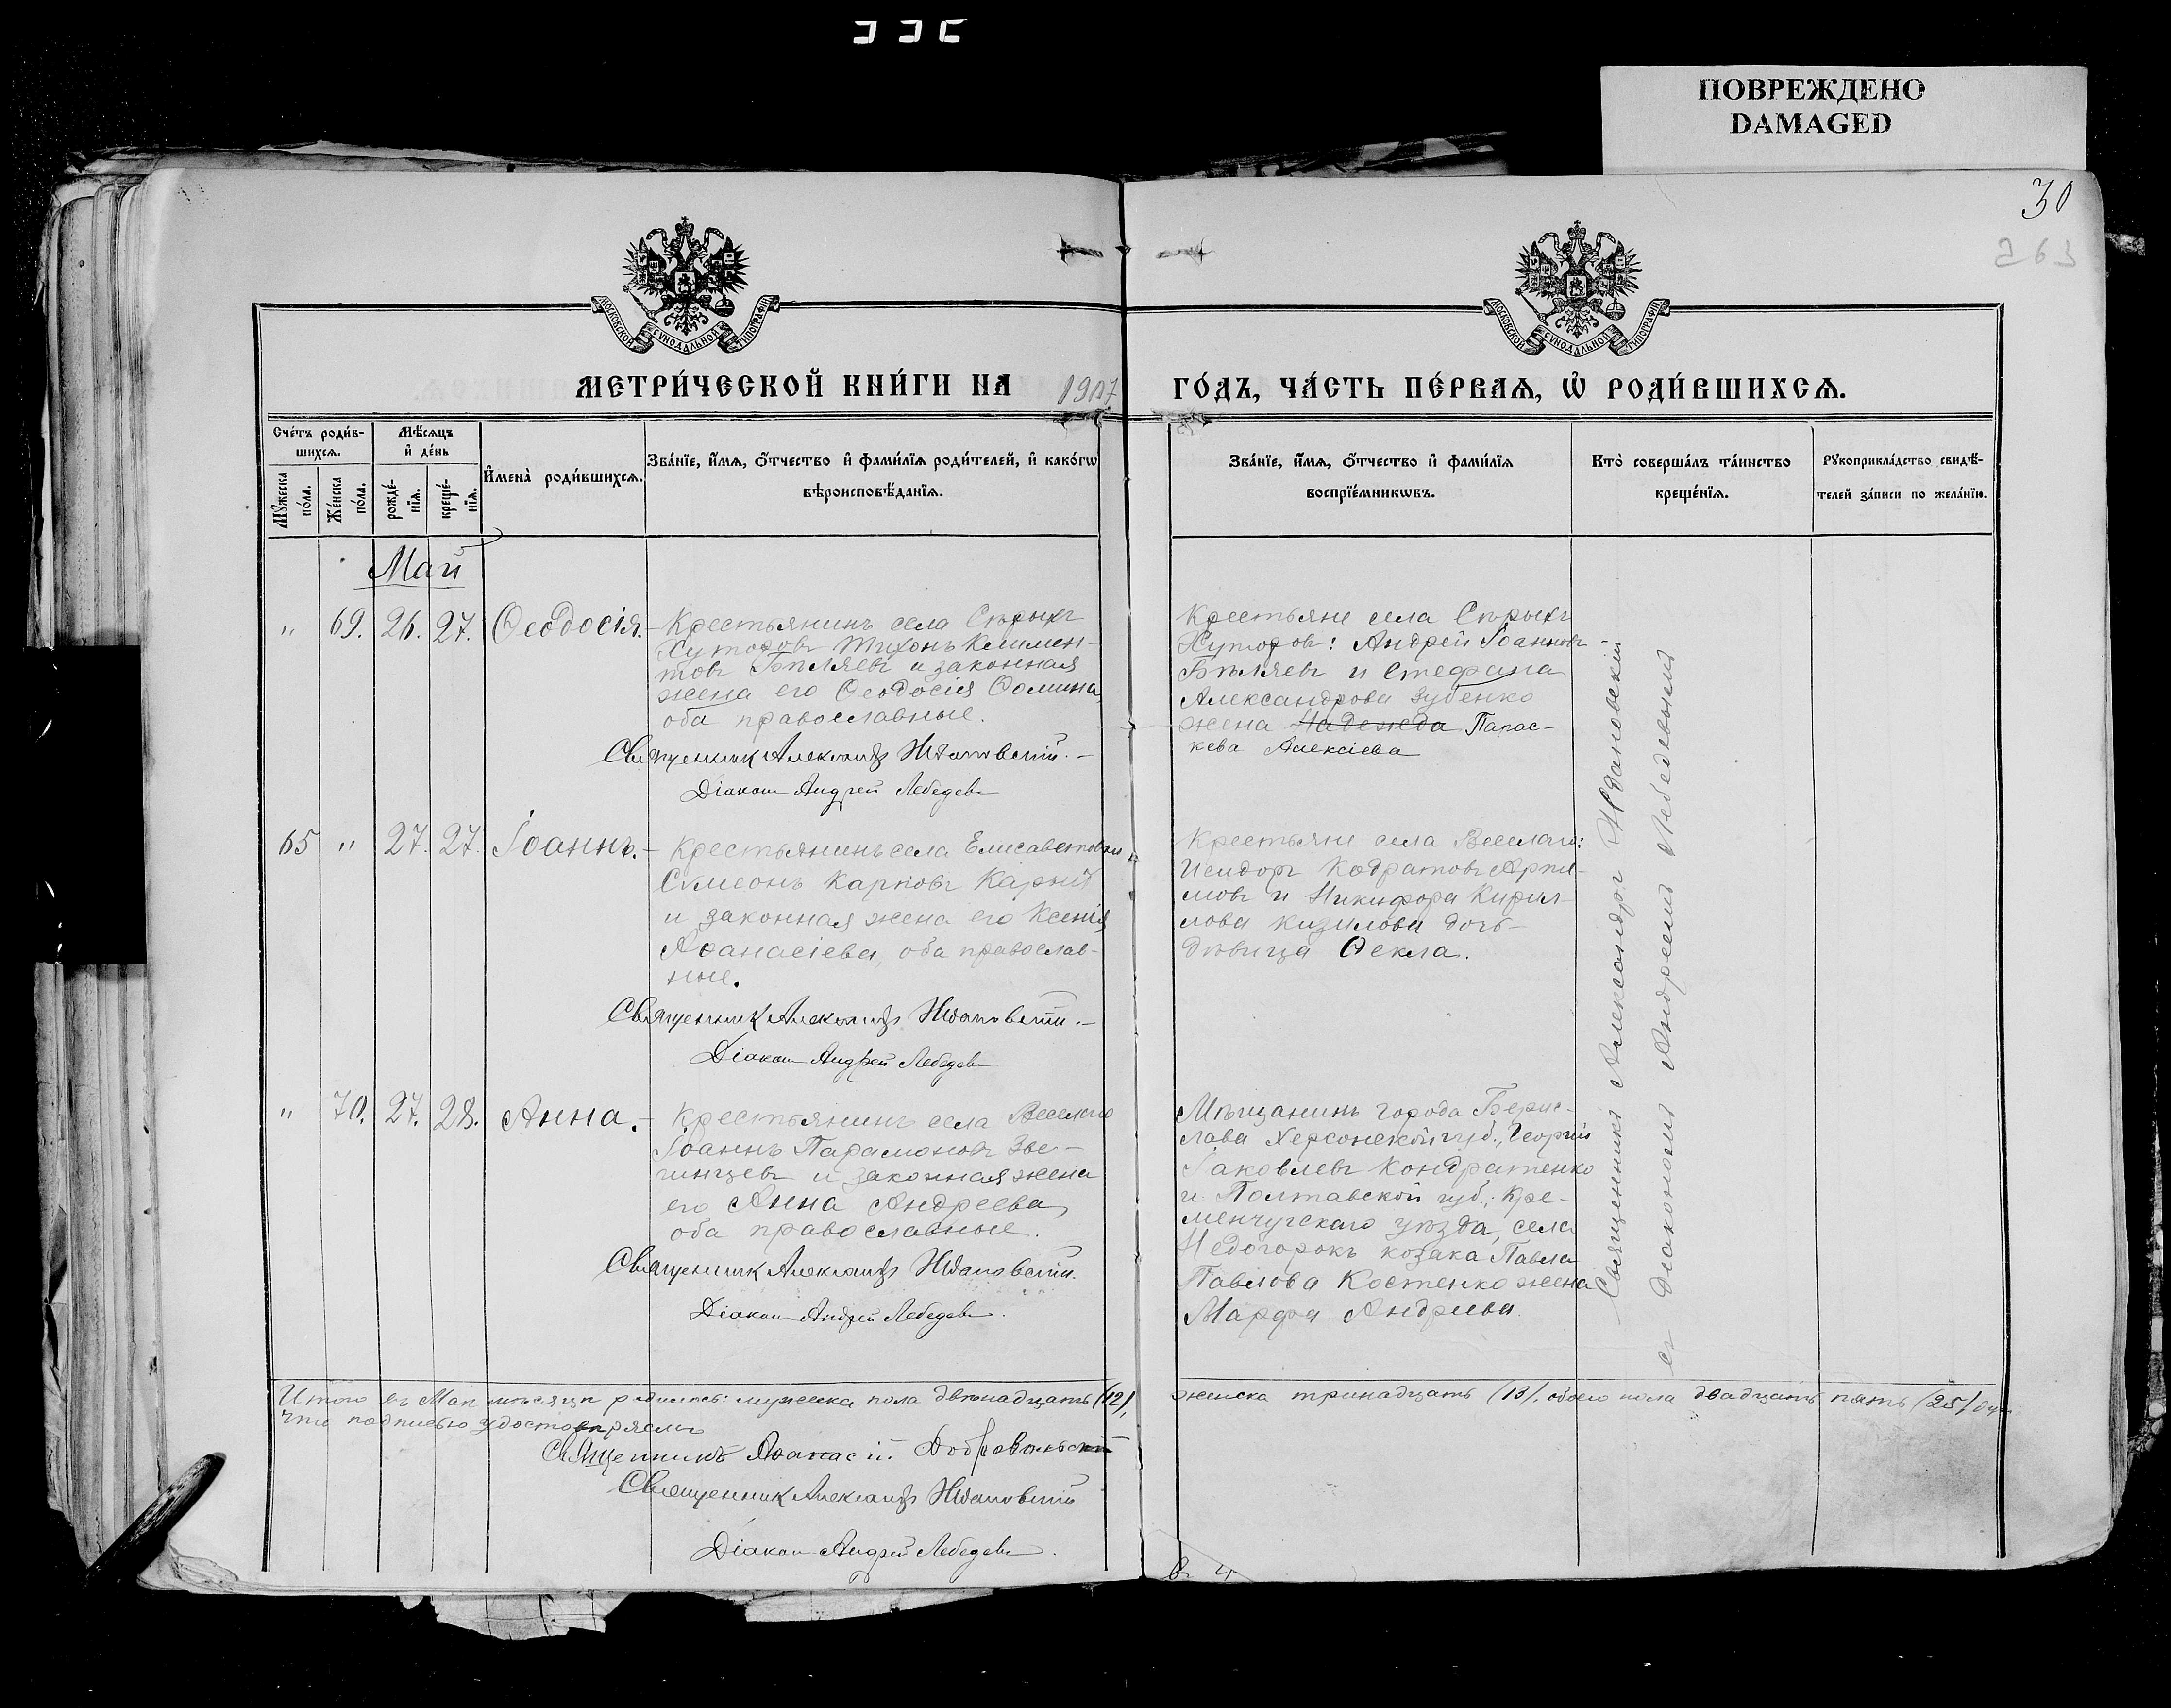 ПОВРЕЖДЕНО
DAMAGED
30
263
МОСКОВСКОЙ СѴНОДАЛЬНОЙ ТИПОГРАФІИ
МОСКОВСКОЙ СѴНОДАЛЬНОЙ ТИПОГРАФІИ
МЕТРИ́ЧЕСКОЙ КНИ́ГИ НА 1907
ГО́ДЪ, ЧА́СТЬ ПЕ́РВАѦ, Ѡ҆ РОДИ́ВШИХСѦ.
Сче́тъ роди́в-
шихсѧ.
Мꙋжеска
по́ла.
Же́нска
по́ла.
Мѣ́сѧцъ
и҆ де́нь
рожде́-
нїѧ.
креще́-
нїѧ.
И҆мена̀ роди́вшихсѧ.
Зва́нїе, и҆́мѧ, ѻ҆́тчество и҆ фами́лїѧ роди́телей, и҆ како́гѡ
вѣроисповѣ́данїѧ.
Зва́нїе, и҆́мѧ, ѻ҆́тчество и҆ фами́лїѧ
воспрїе́мникѡвъ.
Кто̀ соверша́лъ та́инство
креще́нїѧ.
Рꙋкоприкла́дство свидѣ́-
телей за́писи по жела́нїю.
Май
" 69. 26. 27. Ѳеодосія.
Крестьянинъ села Сѣрыхъ
Хуторовъ Тихонъ Климен-
товъ Бѣляевъ и законная
жена его Ѳеодосія Ѳомина,
оба православные.
Священник Александръ Ждановский.
Діаконъ Андрей Лебедевъ
Крестьяне села Сѣрыхъ
Хуторов: Андрей Іоанновъ
Бѣляевъ и Стефана
Александрова Зубенко
жена Надежда Парас-
кева Алексіева
65 " 27. 27. Іоаннъ.
Крестьянинъ села Елисаветовки
Сѵмеонъ Карповъ Карный
и законная жена его Ксенія
Аѳанасіева, оба православ-
ные.
Священник Александръ Ждановский.
Діаконъ Андрей Лебедевъ
Крестьяне села Веселаго:
Исидоръ Кодратовъ Артё-
мовъ и Никифора Кирил-
лова Кизилова дочь-
дѣвица Ѳекла.
" 70. 27. 28. Анна.
Крестьянинъ села Веселаго
Іоаннъ Парамоновъ Зве-
гинцевъ и законная жена
его Анна Андреева,
оба православные.
Священник Александръ Ждановский.
Діаконъ Андрей Лебедевъ.
Мѣщанинъ города Берис-
лава Херсонской губ., Георгій
Іаковлевъ Кондратенко
и Полтавской губ., Кре-
менчугскаго уѣзда, села
Недогорокъ козака Павла
Павлова Костенко жена
Марфа Андреева.
Священникъ Александръ Ждановский
съ діакономъ Андреемъ Лебедевымъ
Итого въ Маѣ мѣсяцѣ родилось: мужеска пола двѣнадцать (12),
женска тринадцать (13), обоего пола двадцать пять (25)
что подписью удостовѣряемъ
Священникъ Аѳанасій Добровольскій
Священник Александръ Ждановский
Діаконъ Андрей Лебедевъ.